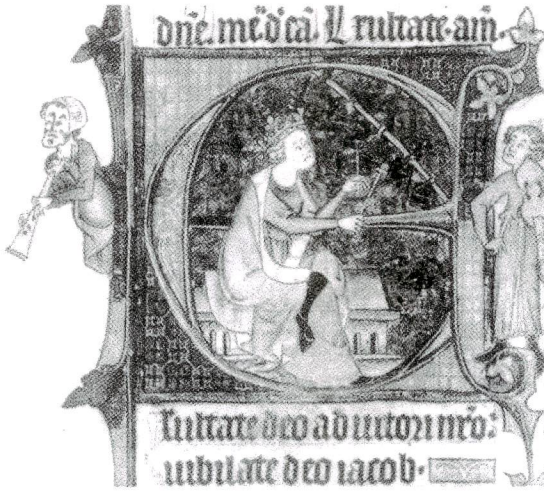 dn̄e. mēd̄cā. Exultate. am̄.
sultate deo adiutori nr̄o:
iubilate deo iacob.